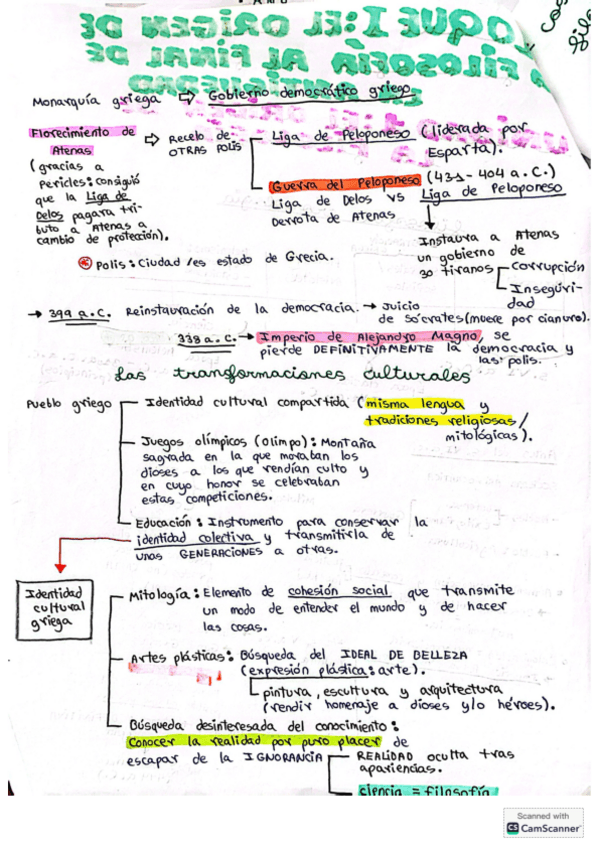 OQUE I: EL ORIGEN DE
FILOSOFÍA AL FINAL DE
Monarquía griega → Gobierno democrático griego
Florecimiento de Atenas
(gracias a
Pericles: consiguió
que la Liga de
Delos pagara tri-
buto a Atenas a
cambio de protección).
→ Recelo de
OTRAS POLIS
Liga de Peloponeso (liderada por
Esparta).
Guerra del Peloponeso (431- 404 a.C.)
Liga de Delos vs Liga de Peloponeso
Derrota de Atenas
Instaura a Atenas
un gobierno de
30 tiranos
Corrupción
Inseguri-
dad
* Polis: Ciudad /es estado de Grecia.
→ 399 a.C. Reinstauración de la democracia. → Juicio
de Sócrates (muere por cianuro).
338 a.C. → Imperio de Alejandro Magno, se
pierde DEFINITIVAMENTE la democracia y
las polis.
Las transformaciones culturales
Pueblo griego
Identidad cultural compartida (misma lengua y
tradiciones religiosas/
mitológicas).
Juegos olímpicos (Olimpo): Montaña
sagrada en la que moraban los
dioses a los que rendían culto y
en cuyo honor se celebraban
estas competiciones.
Educación: Instrumento para conservar la
identidad colectiva y transmitirla de
unas GENERACIONES a otras.
Identidad
cultural
griega
Mitología: Elemento de cohesión social que transmite
un modo de entender el mundo y de hacer
las cosas.
Artes plásticas: Búsqueda del IDEAL DE BELLEZA
(expresión plástica: arte).
pintura, escultura y arquitectura
(rendir homenaje a dioses y/o héroes).
Búsqueda desinteresada del conocimiento:
Conocer la realidad por puro placer de
escapar de la IGNORANCIA
REALIDAD oculta tras
apariencias.
ciencia = filosofía
Scanned with
CS CamScanner